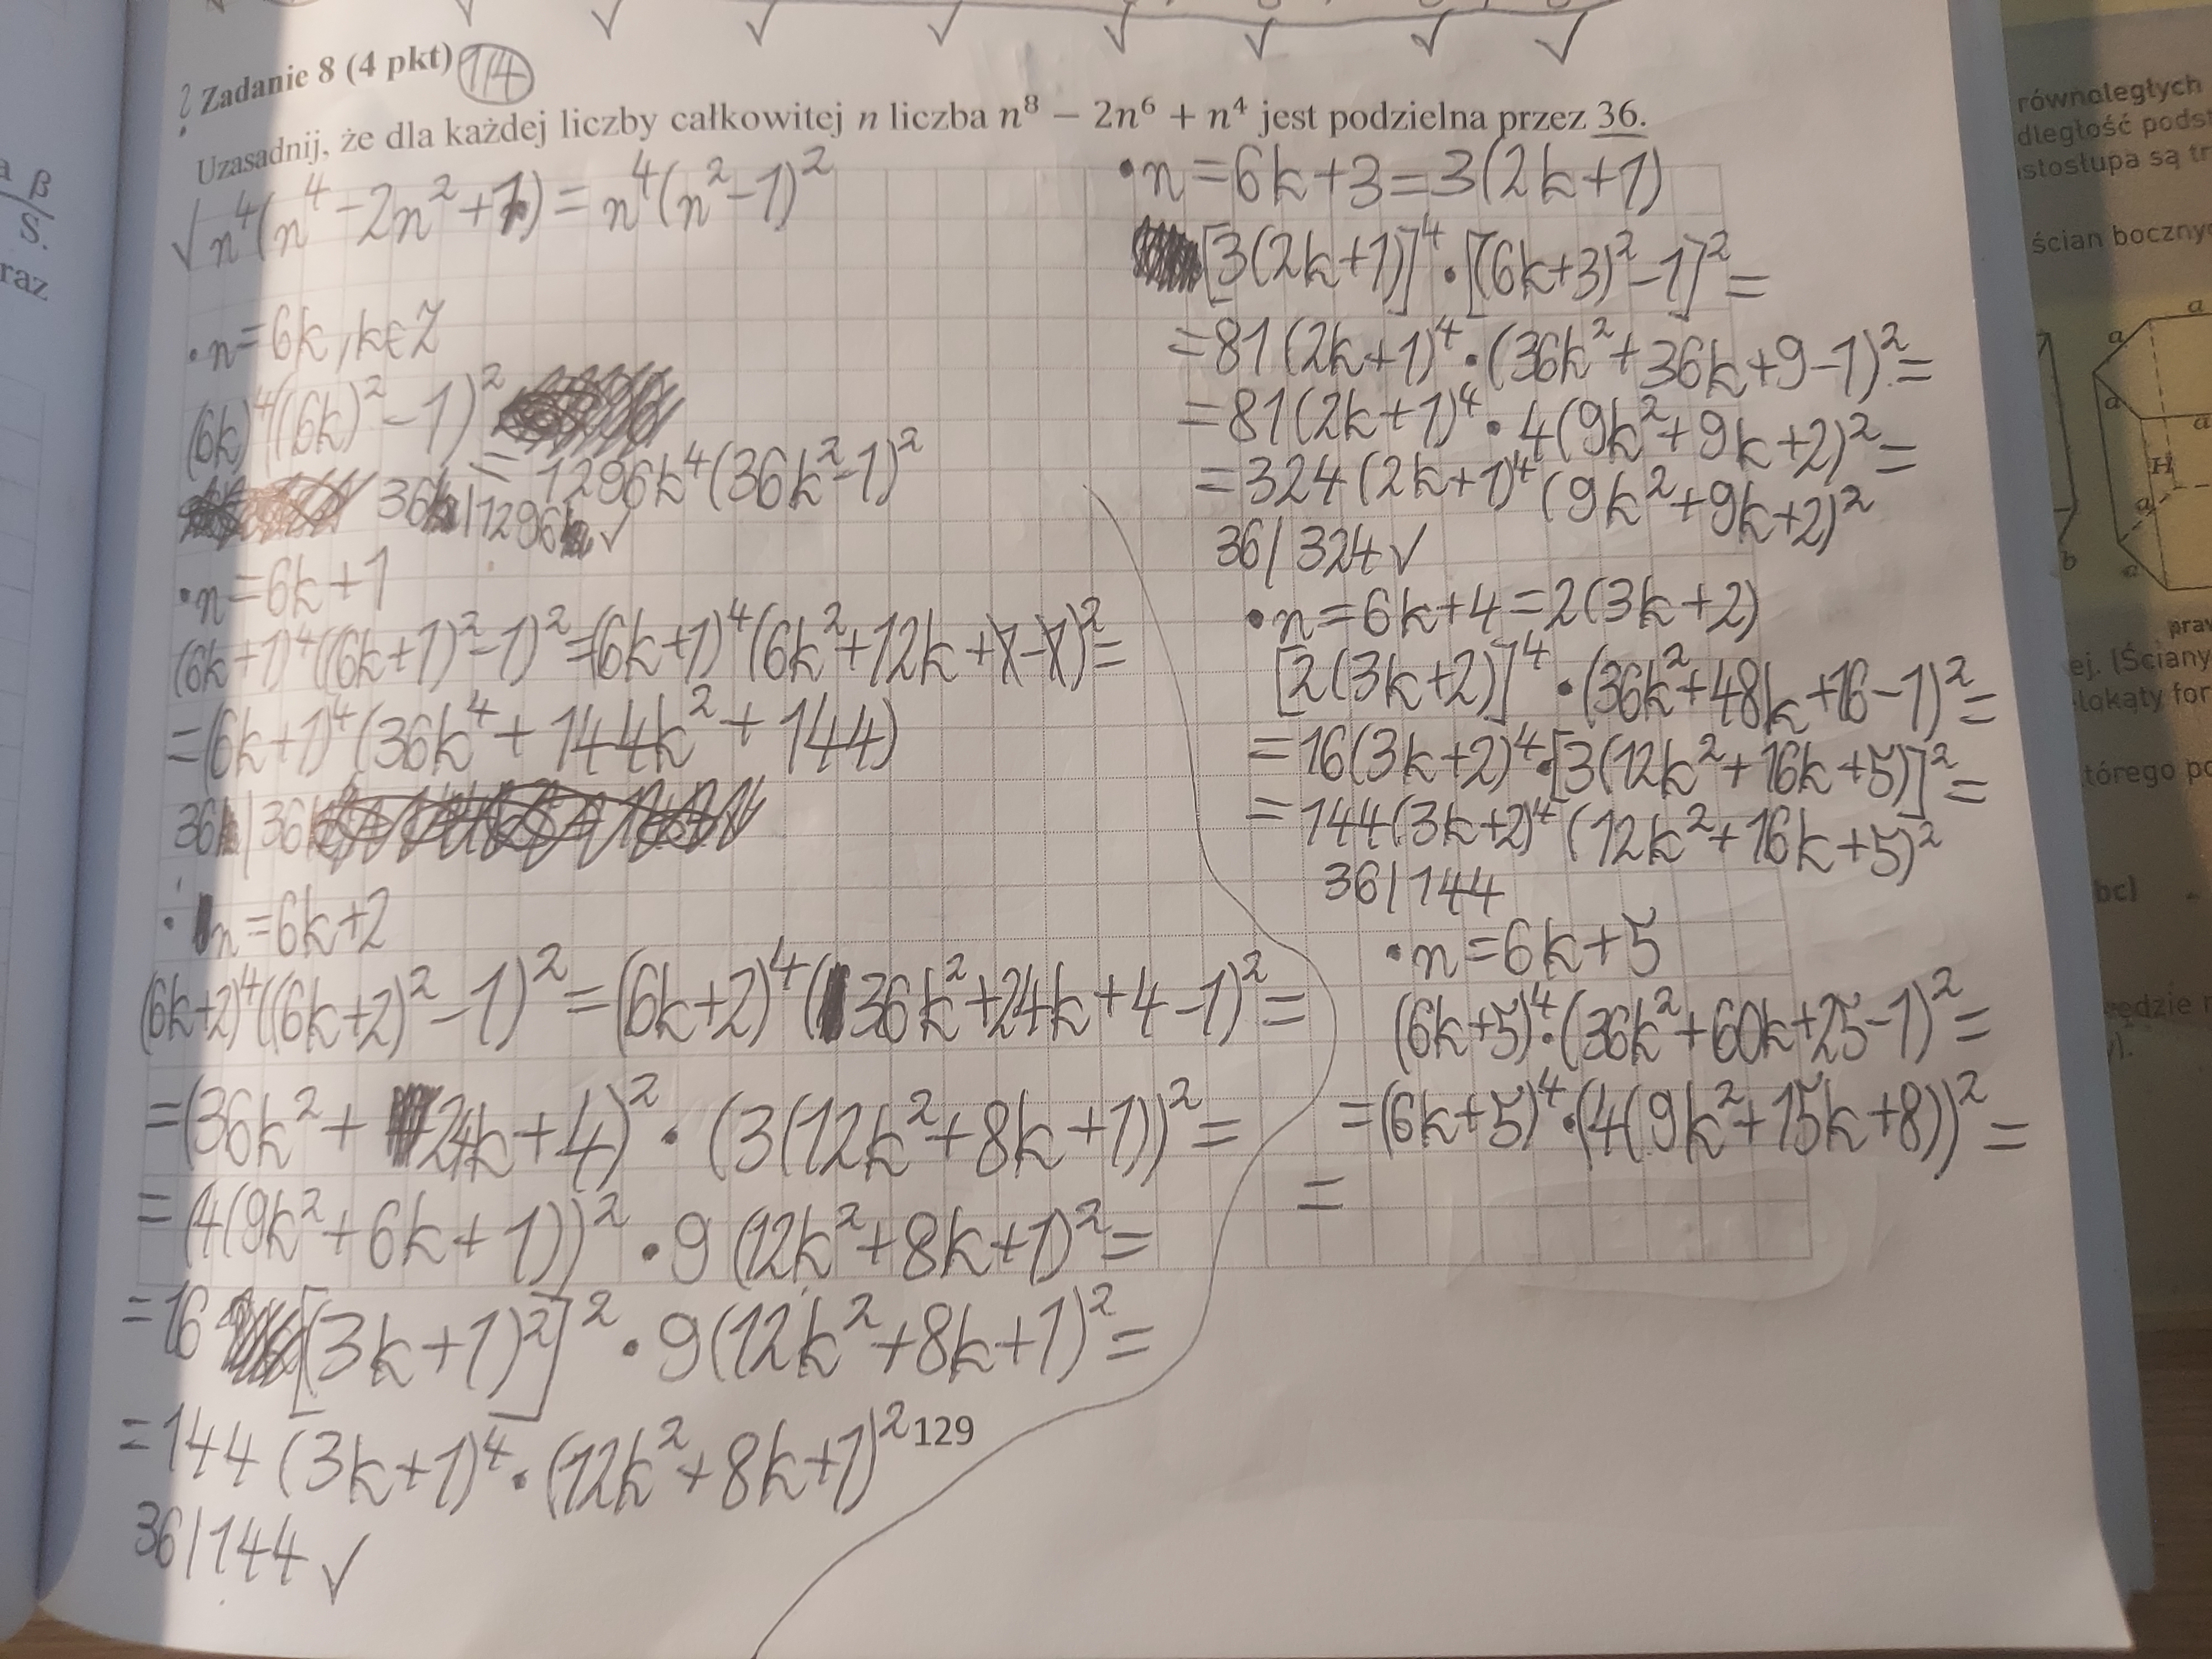 Zadanie 8 (4 pkt) 1/4
Uzasadnij, że dla każdej liczby całkowitej n liczba n⁸ − 2n⁶ + n⁴ jest podzielna przez 36.
√ n⁴(n⁴-2n²+1) = n⁴(n²-1)²
• n=6k, k∈Z
(6k)⁴((6k)²-1)²
= 1296k⁴(36k²-1)²
36|1296 √
• n=6k+1
(6k+1)⁴((6k+1)²-1)²=(6k+1)⁴(6k²+12k+1-1)²=
=(6k+1)⁴(36k⁴+144k²+144)
36|36
• n=6k+2
(6k+2)⁴((6k+2)²-1)²=(6k+2)⁴(36k²+24k+4-1)²=
=(36k²+24k+4)²·(3(12k²+8k+1))²=
=(4(9k²+6k+1))²·9(12k²+8k+1)²=
=16[(3k+1)²]²·9(12k²+8k+1)²=
=144(3k+1)⁴·(12k²+8k+1)²
36|144 √
• n=6k+3=3(2k+1)
[3(2k+1)]⁴·[(6k+3)²-1]²=
=81(2k+1)⁴·(36k²+36k+9-1)²=
=81(2k+1)⁴·4(9k²+9k+2)²=
=324(2k+1)⁴(9k²+9k+2)²
36|324 √
• n=6k+4=2(3k+2)
[2(3k+2)]⁴·(36k²+48k+16-1)²=
=16(3k+2)⁴·[3(12k²+16k+5)]²=
=144(3k+2)⁴(12k²+16k+5)²
36|144
• n=6k+5
(6k+5)⁴·(36k²+60k+25-1)²=
=(6k+5)⁴·(4(9k²+15k+8))²=
=
129
β
S.
raz
równoległych
ścian bocznyc
a
a
a
a
H
a
a
b
ej. (Ściany
tórego po
bc]